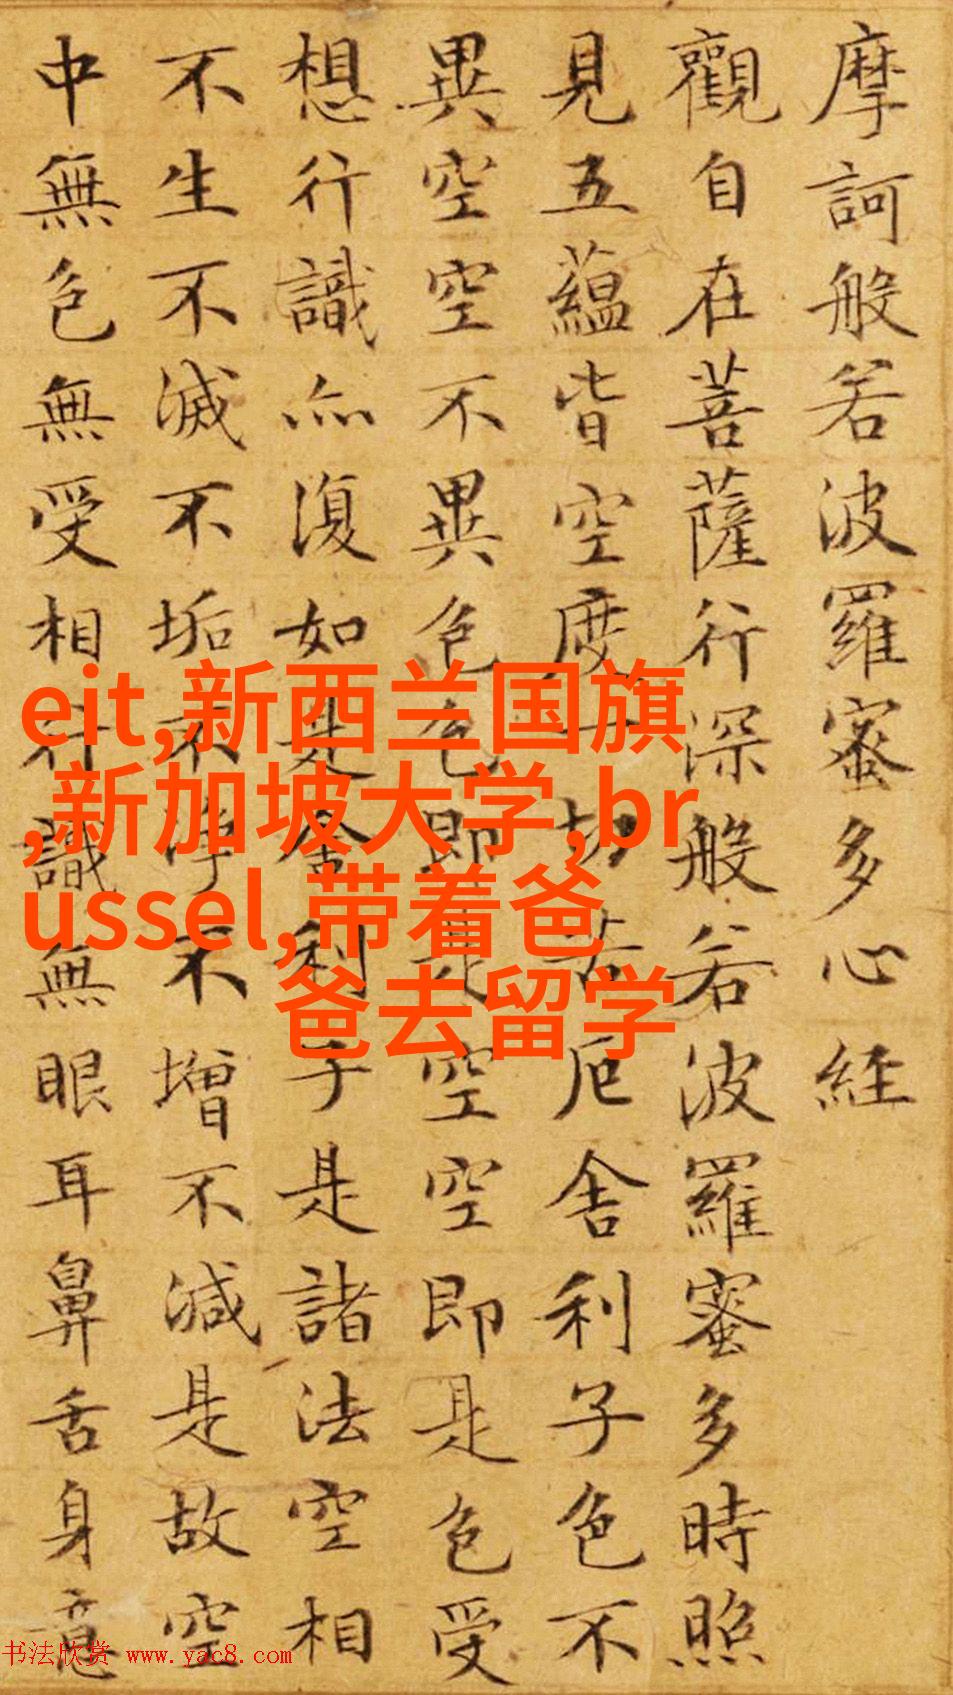 摩訶般若波羅蜜多心経
觀自在菩薩行深般若波羅蜜多時照
見五蘊皆空度一切苦厄舍利子色不
異空空不異色色即是空空即是色受
想行識亦復如是舍利子是諸法空相
不生不滅不垢不淨不增不減是故空
中無色無受相行識無眼耳鼻舌身意
eit,新西兰国旗
,新加坡大学,br
ussel,带着爸
爸去留学
书法欣赏 www.yac8.com